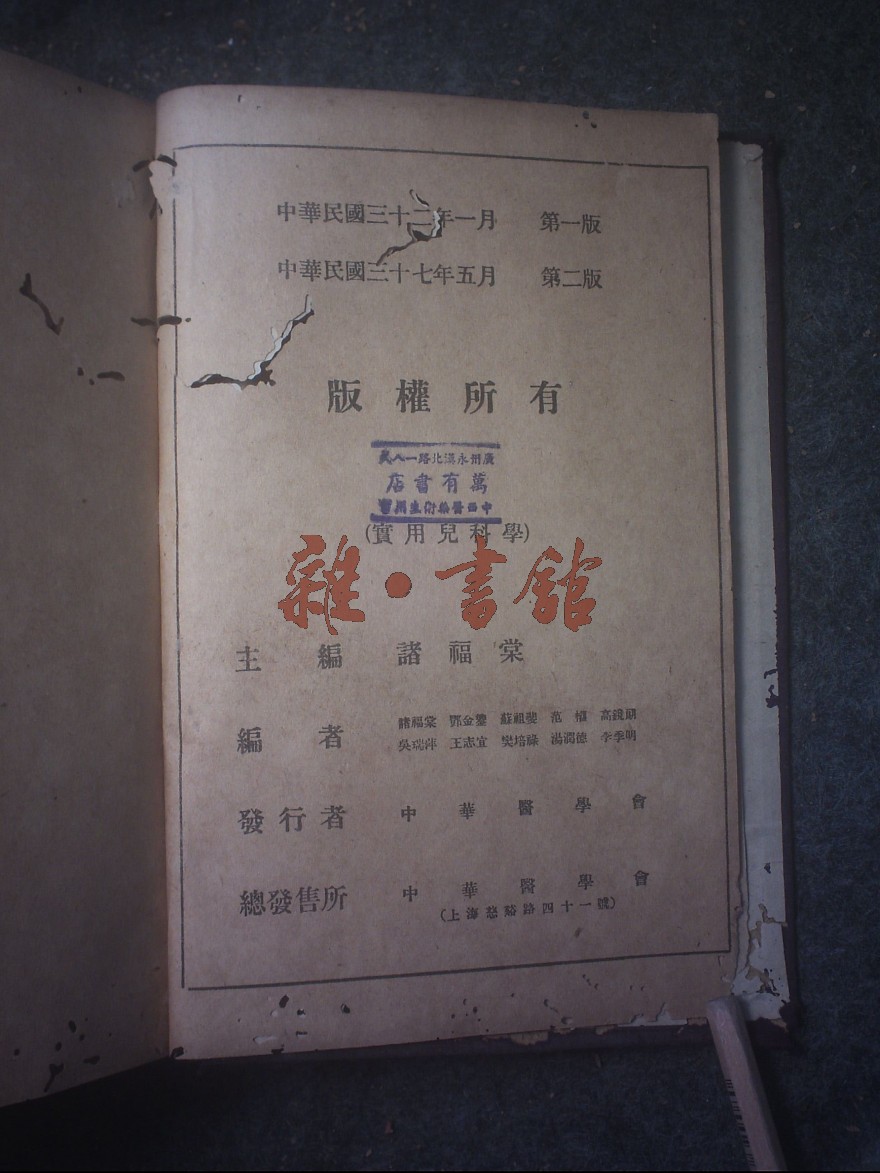 中華民國三十二年一月 第一版
中華民國三十七年五月 第二版
版權所有
廣州永漢北路一八弍
萬有書店
中西醫藥衛生用書
(實用兒科學)
雜·書館
主編 諸福棠
編者 諸福棠 鄧金鎏 蘇祖斐 范權 高鏡朗
吳瑞萍 王志宜 樊培祿 湯潤德 李季明
發行者 中華醫學會
總發售所 中華醫學會
(上海慈谿路四十一號)